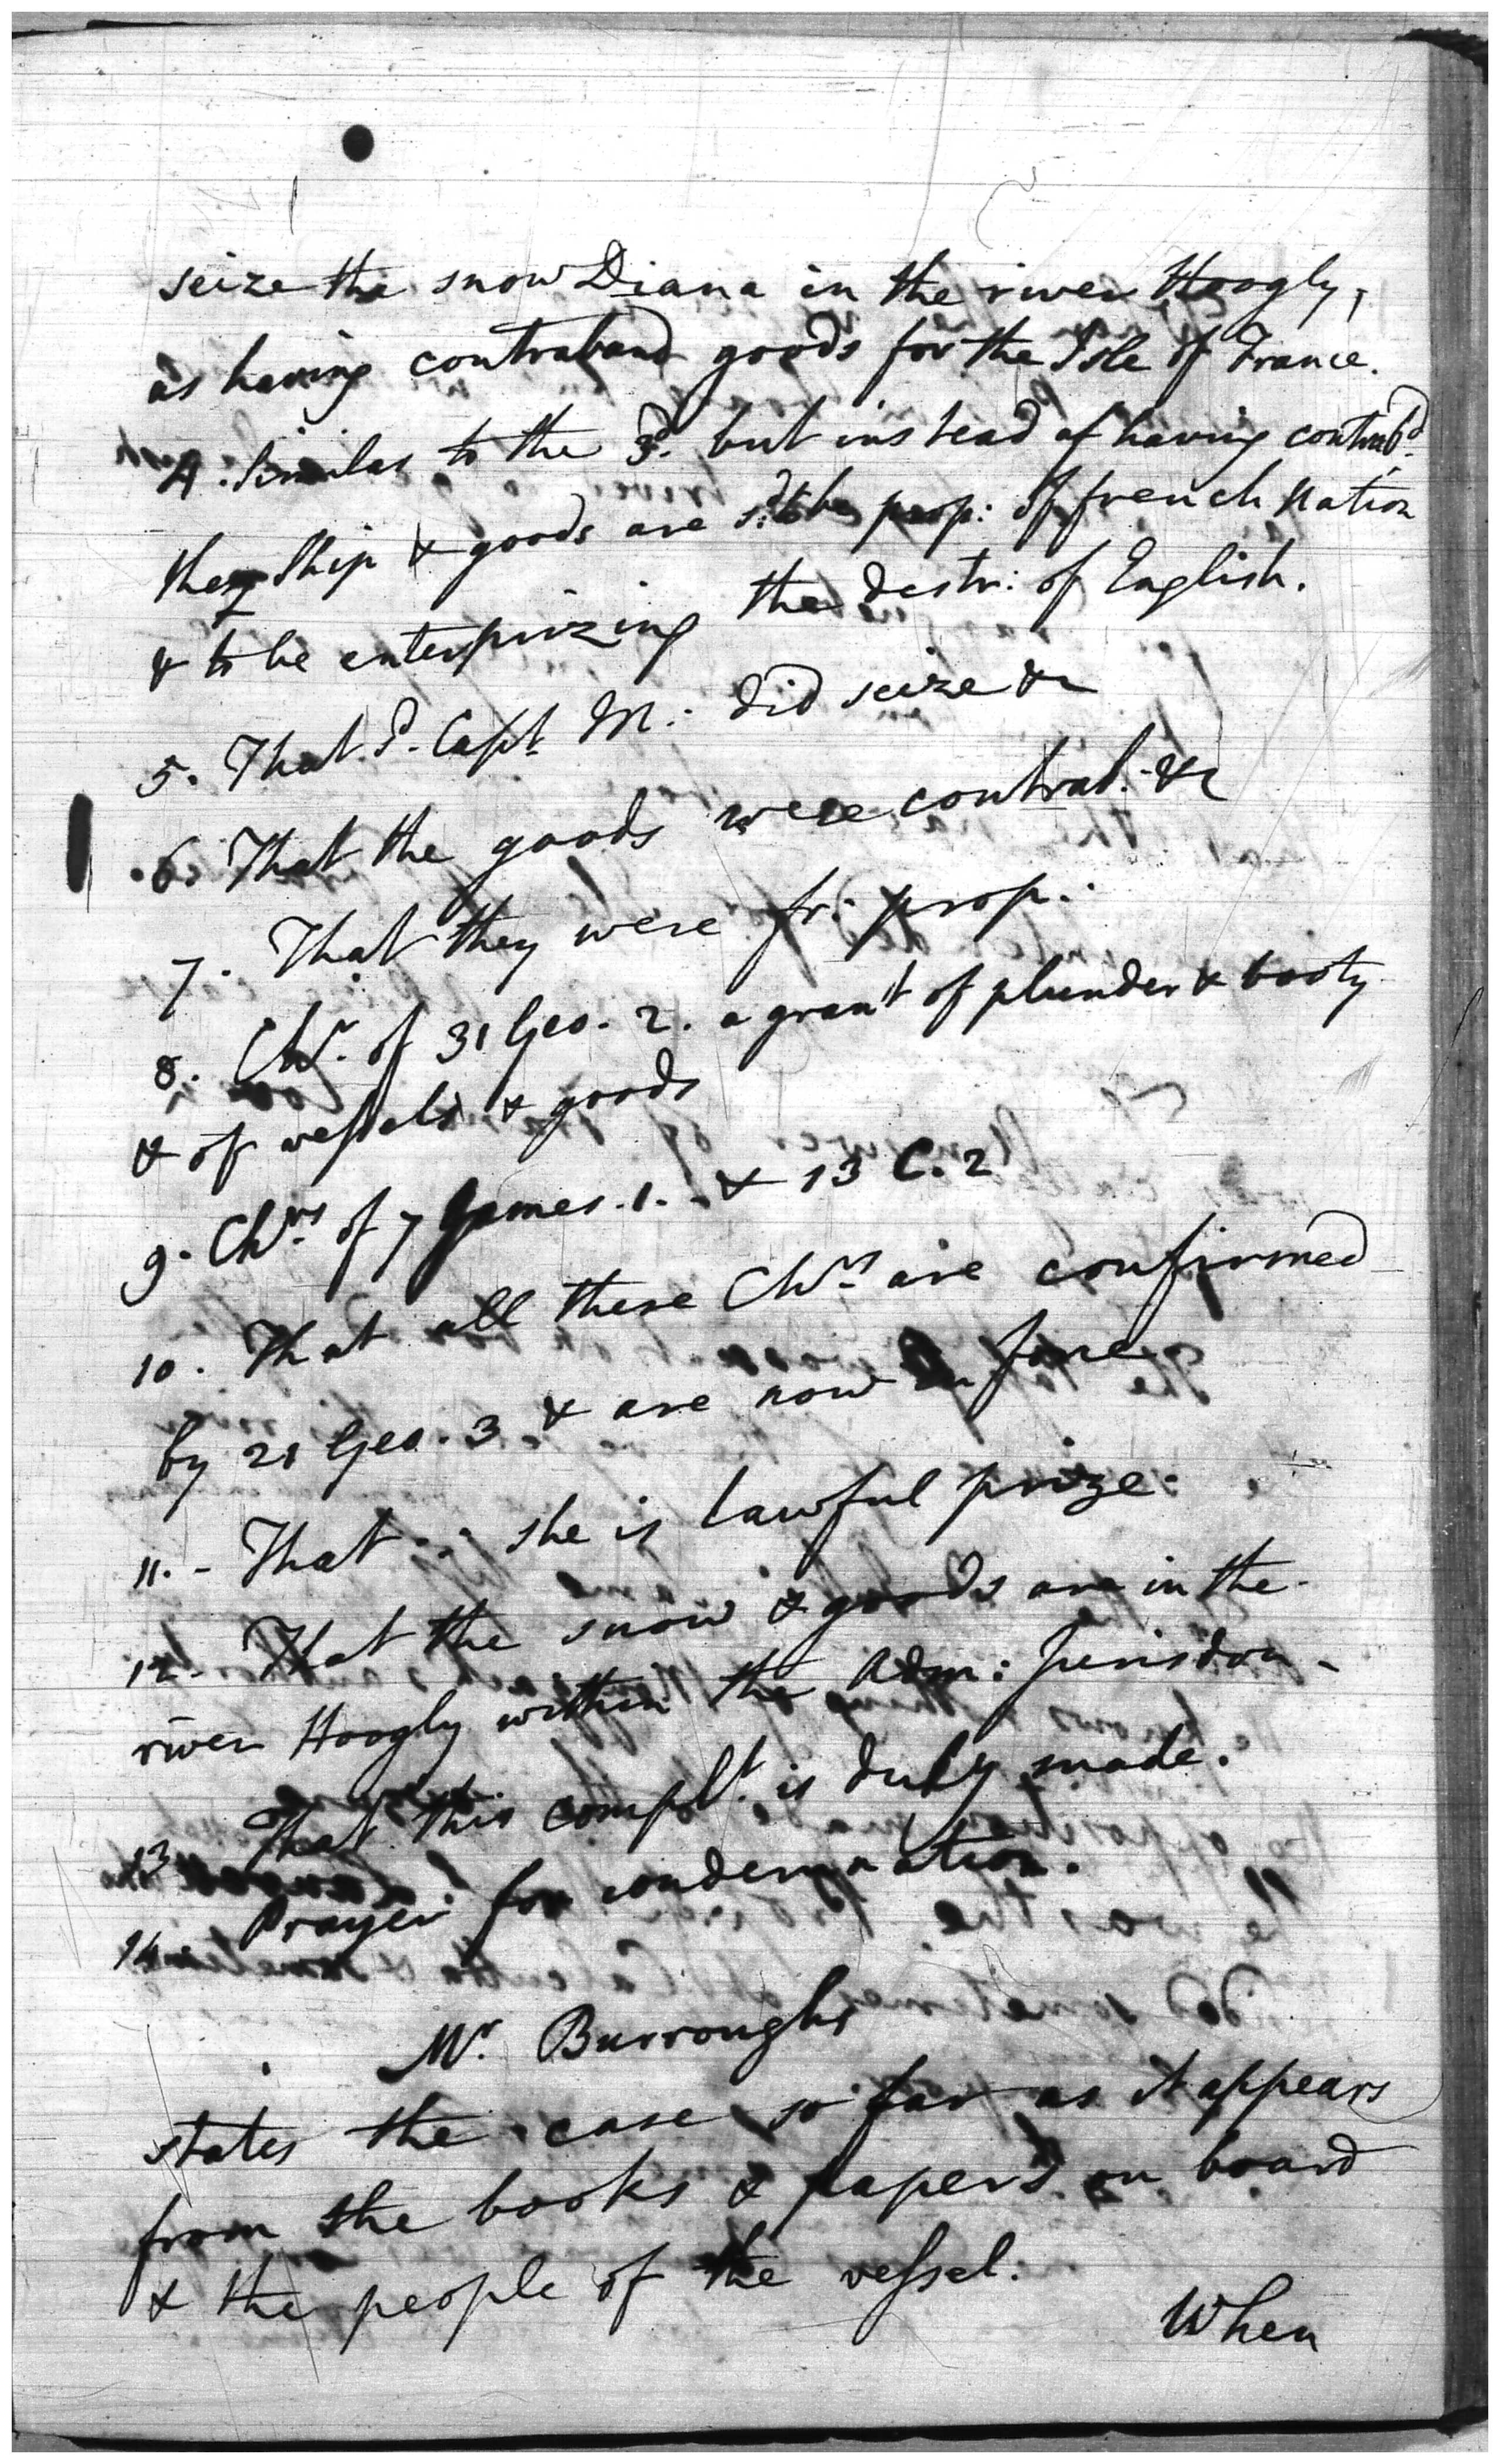 seize the snow Diana in the river Hoogly,
as having contraband goods for the Isle of France.
4. Similar to the 3d. but instead of having contrabd.
they Ship & goods are sd. to be prop: of french Nation
& to be enterprizing the destr: of English.
5. That sd. Capt. M: did seize &c
6. That the goods were contrab. &c
7. That they were fr: prop:
8. Chr. of 31 Geo. 2. a grant of plunder & booty
& of vessels & goods
9. Chrs. of 7 James. 1. & 13 C. 2
10. That all these Chrs. are confirmed
by 21 Geo. 3 & are now in force
11. - That .. she is lawful prize.
12. That the snow & goods are in the
river Hoogly within the Adm: Jurisdon -
13 That this complt. is duly made.
14. Prayer for condemnation.
Mr. Burroughs
states the case so far as it appears
from the books & papers on board
& the people of the vessel.
When